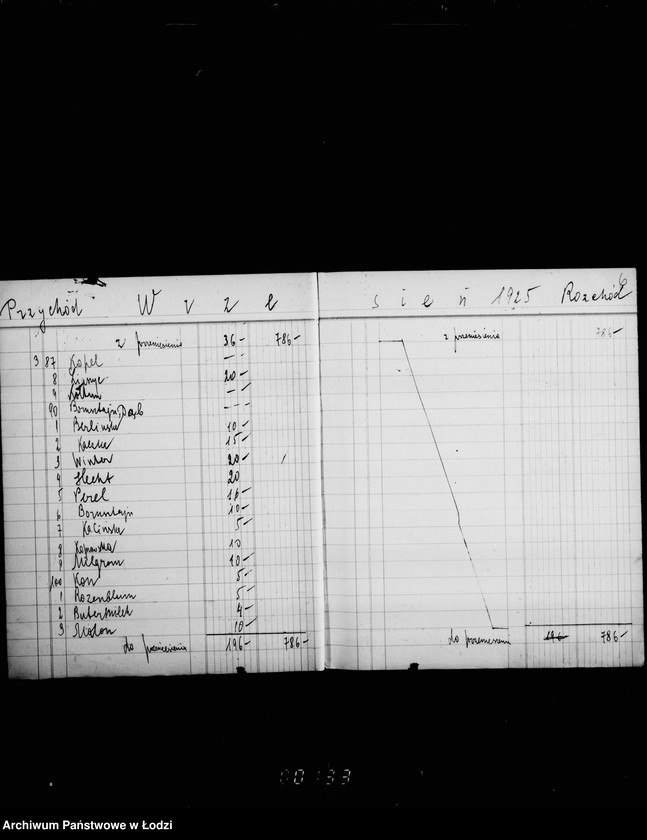 Przychód W r z e
z przeniesienia 36- 786-
3 87 Kopel -
8 20-
9 -
90 Bornsztajn, Dab -
1 Berliński 10-
2 15-
3 Winter 20-
4 Hecht 20
5 Perel 16-
6 Bornsztajn 10-
7 Kaliński 5-
8 10
9 Milgrom 10-
100 Kon 5-
1 Rozenblum 5-
2 4-
3 10-
do przeniesienia 196- 786-
s i e ń 1925 Rozchód 6
z przeniesienia 786-
do przeniesienia 196- 786-
00133
Archiwum Państwowe w Łodzi